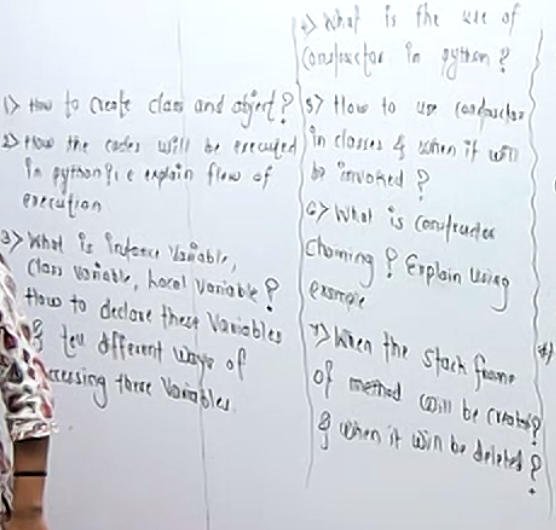 1> How to create class and object?
2> How the codes will be executed
in python i.e explain flow of
execution
3> What is instance variable,
class variable, Local variable?
How to declare these variables
& tell different ways of
accessing these variables.
4> What is the use of
constructor in python?
5> How to use constructor
in classes & when it will
be invoked?
6> What is constructor
chaining? Explain using
example
7> When the stack frame
of method will be created?
& when it will be deleted?